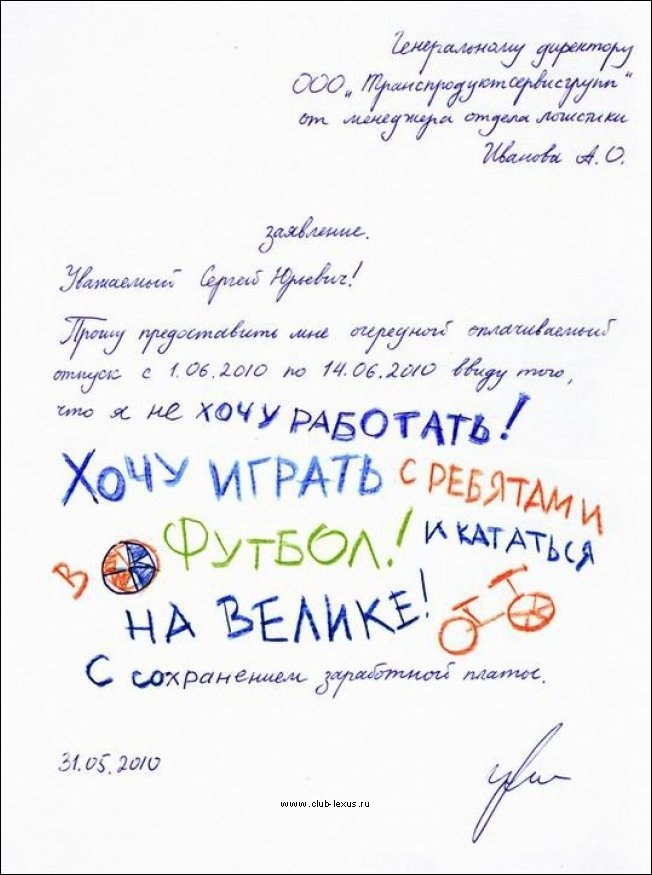 Генеральному директору
ООО „Транспродуктсервисгрупп"
от менеджера отдела логистики
Иванова А.О.
заявление.
Уважаемый Сергей Юрьевич!
Прошу предоставить мне очередной оплачиваемый
отпуск с 1.06.2010 по 14.06.2010 ввиду того,
что я не ХОЧУ РАБОТАТЬ!
ХОЧУ ИГРАТЬ С РЕБЯТАМИ
В ФУТБОЛ! И КАТАТЬСЯ
НА ВЕЛИКЕ!
С сохранением заработной платы.
31.05.2010
www.club-lexus.ru